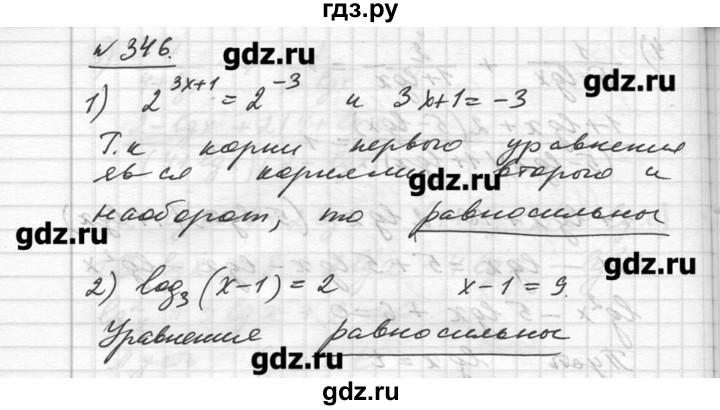 гдз.ру
№ 346.
gdz.ru
gdz.ru
1) 2^{3x+1} = 2^{-3} и 3x+1 = -3
Т.к корни первого уравнения
яв-ся корнями второго и
gdz.ru
наоборот, то равносильны
gdz.ru
gdz.ru
2) log₃(x-1) = 2 x-1 = 9.
Уравнение равносильны
gdz.ru
gdz.ru